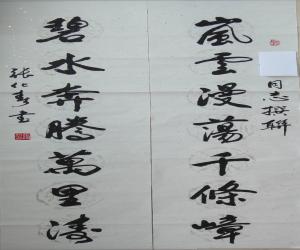 嵐雲漫蕩千條嶂
同志撰聯
碧水奔騰萬里濤
張仁壽書